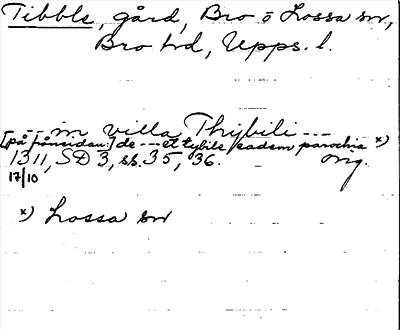 Tibble, gård, Bro o Lossa sn,
Bro hd, Upps. l.
--- in villa Thybili ---
[på frånsidan:] de --- et tybile eadem parochia x)
1311, SD 3, ss. 35, 36. orig.
17/10
x) Lossa sn